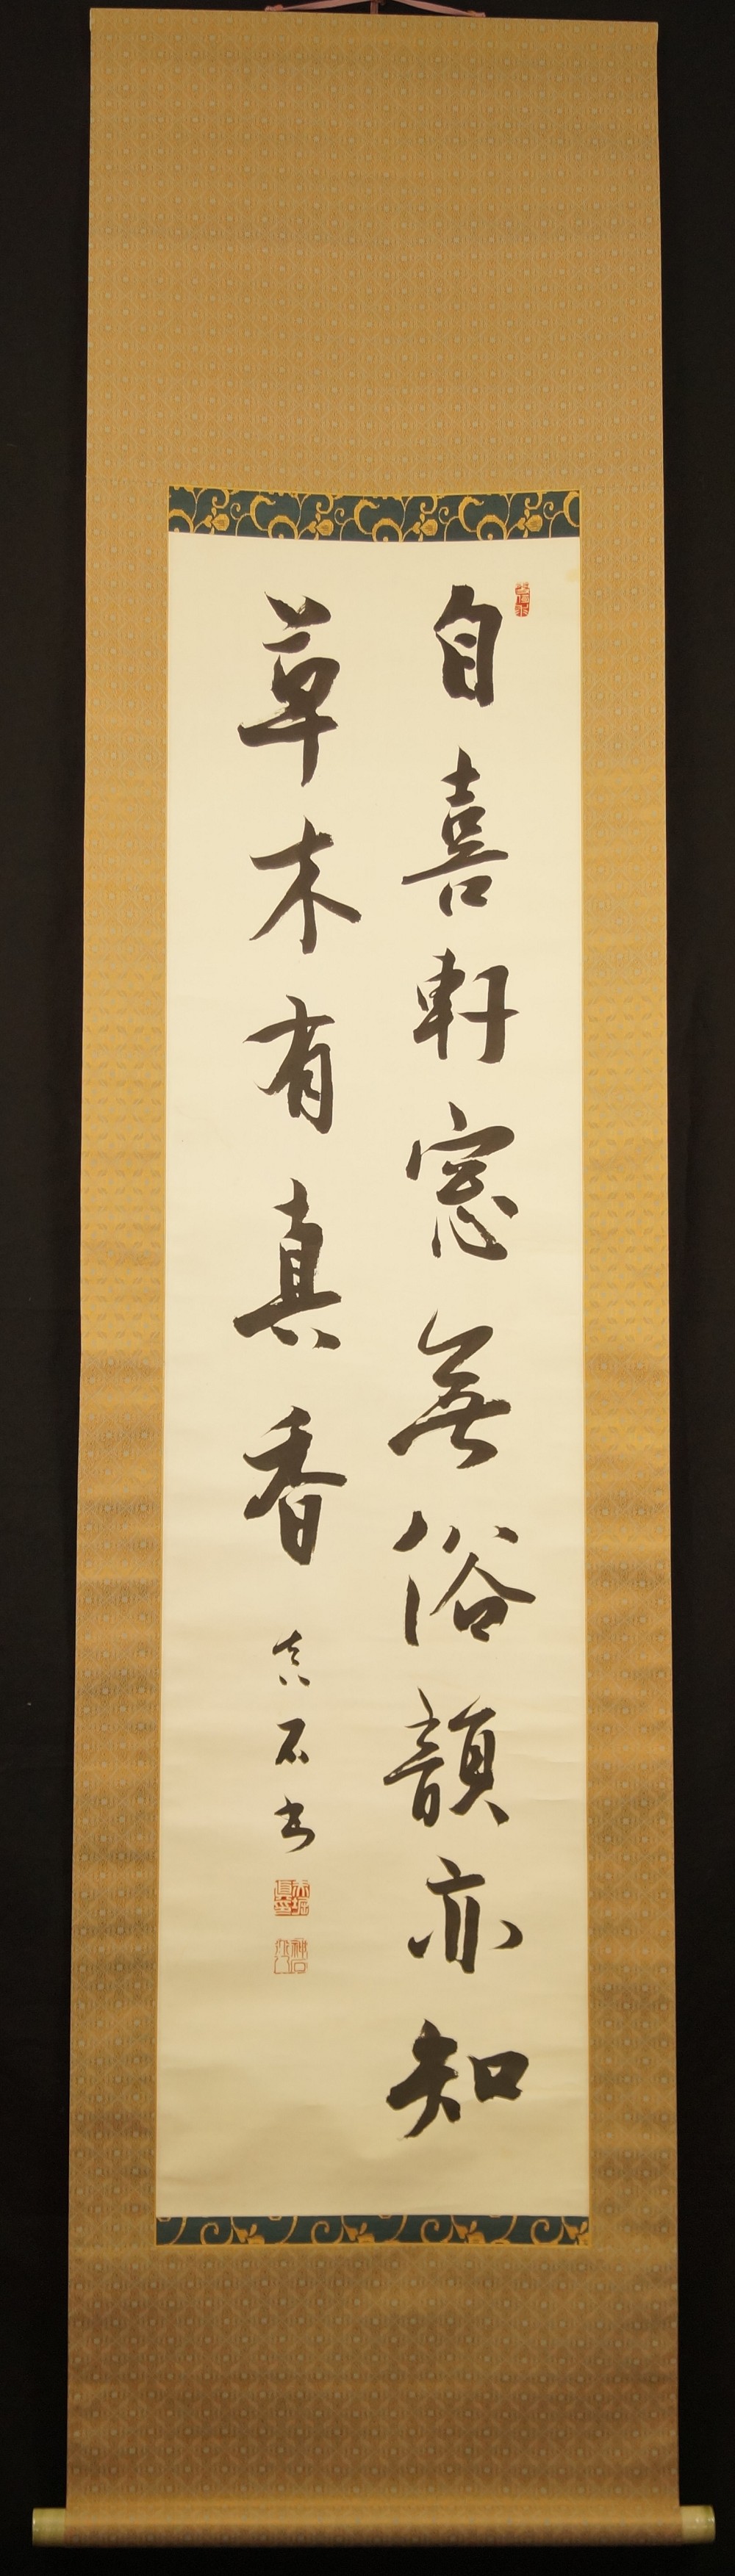 自喜軒窓無俗韻亦知
草木有真香
石書